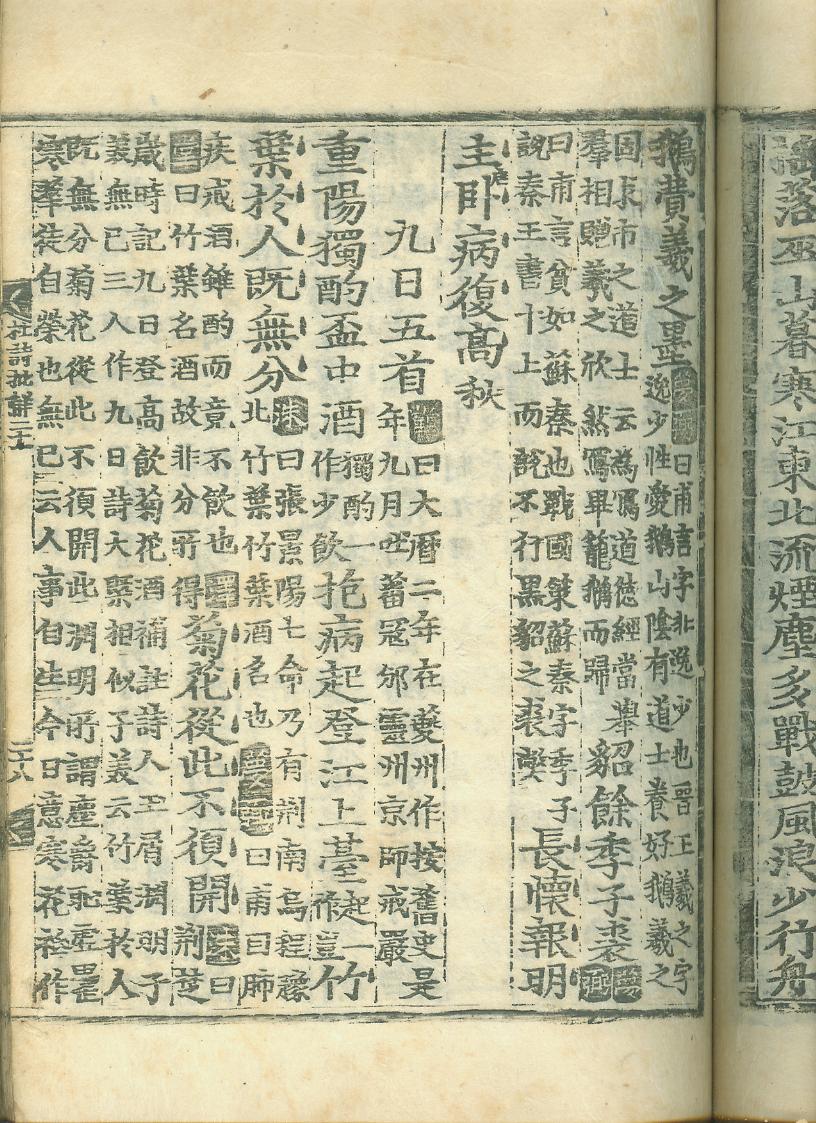 搖落巫山暮寒江東北流煙塵多戰鼓風浪少行舟
鵝費羲之墨夢弼曰甫言字非逸少也晉王羲之字
逸少性愛鵝山陰有道士養好鵝羲之
固求市之道士云為寫道德經當舉
羣相贈羲之欣然寫畢籠鵝而歸貂餘季子裘夢弼
曰甫言貧如蘇秦也戰國策蘇秦字季子
說秦王書十上而說不行黑貂之裘獘長懷報明
主卧病復高秋
九日五首鶴曰大曆二年在夔州作按舊史是
年九月吐蕃寇邠靈州京師戒嚴
重陽獨酌盃中酒獨酌一作少飲抱病起登江上臺起一作豈竹
葉於人既無分洙曰張景陽七命乃有荆南烏程豫
北竹葉竹葉酒名也夢弼曰甫曰肺
疾戒酒雖酌而竟不飲也
曰竹葉名酒故非分所得菊花從此不須開洙曰荆楚
歲時記九日登高飲菊花酒補註詩人玉屑淵明子
義無已三人作九日詩大槩相似子義云竹葉於人
既無分菊花從此不須開此淵明所謂塵爵恥虛罍
寒華徒自榮也無已云人事自生今日意寒花祗作
杜詩批詳二十
二十八